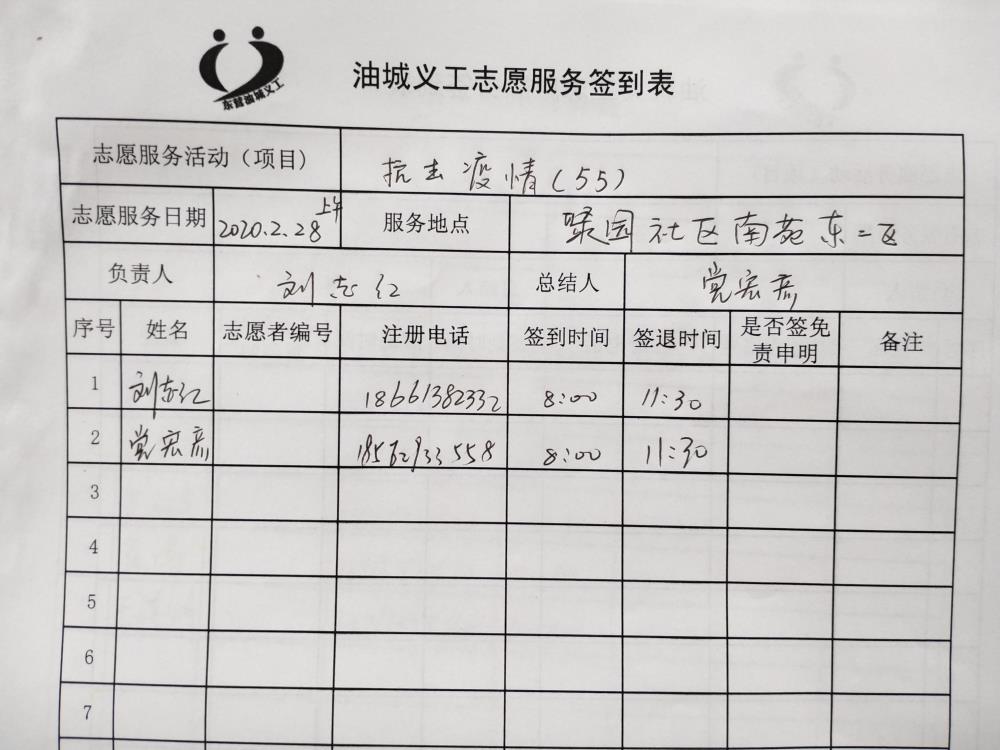 东营油城义工
油城义工志愿服务签到表
志愿服务活动（项目） 抗击疫情(55)
志愿服务日期 2020.2.28上午 服务地点 聚园社区南苑东二区
负责人 刘志红 总结人 党宏彦
序号 姓名 志愿者编号 注册电话 签到时间 签退时间 是否签免责申明 备注
1 刘志红 18661382332 8:00 11:30
2 党宏彦 18562933558 8:00 11:30
3
4
5
6
7